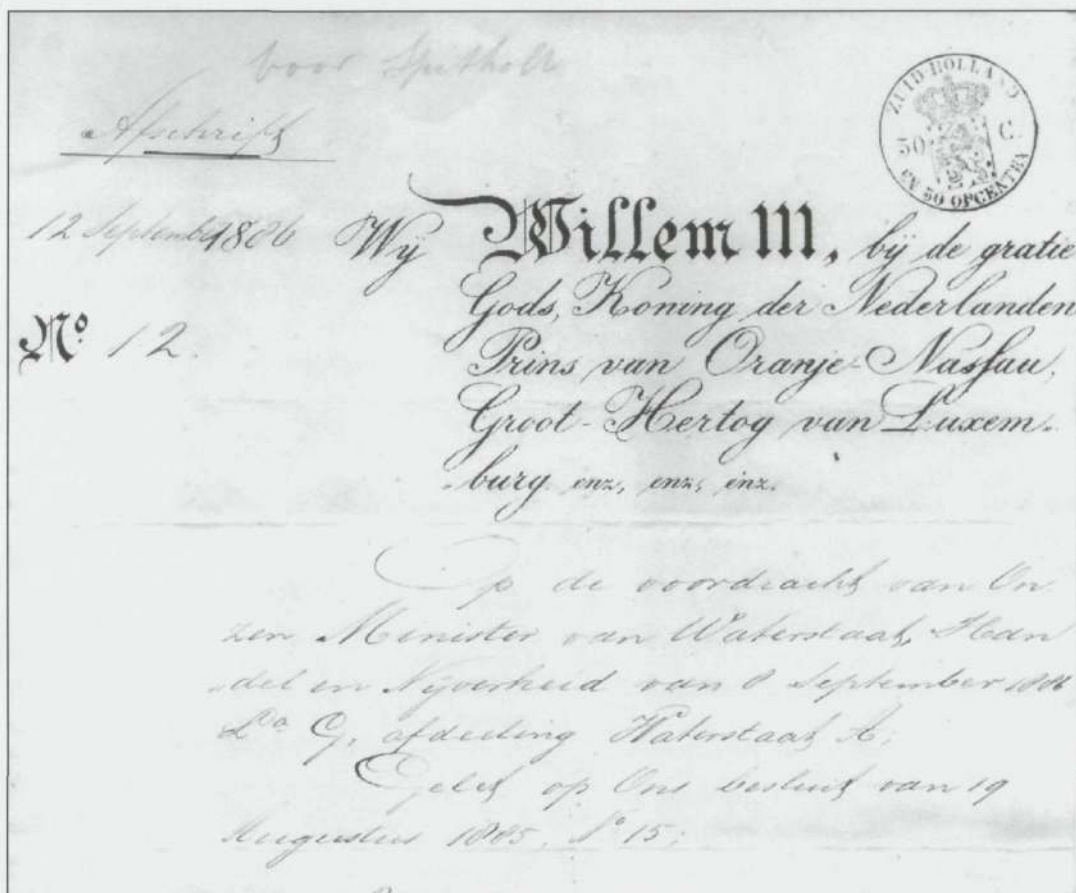 voor
Afschrift
ZUID-HOLLAND
50 C.
EN 50 OPCENTEN
12 September 1886 Wij Willem III, bij de gratie
Gods, Koning der Nederlanden
Nº 12.
Prins van Oranje-Nassau,
Groot-Hertog van Luxem-
burg enz, enz, enz.
Op de voordracht van On
zen Minister van Waterstaat, Han
del en Nijverheid van 8 September 1886
La G, afdeeling Waterstaat A;
Gelet op Ons besluit van 19
Augustus 1885, Nº 15;